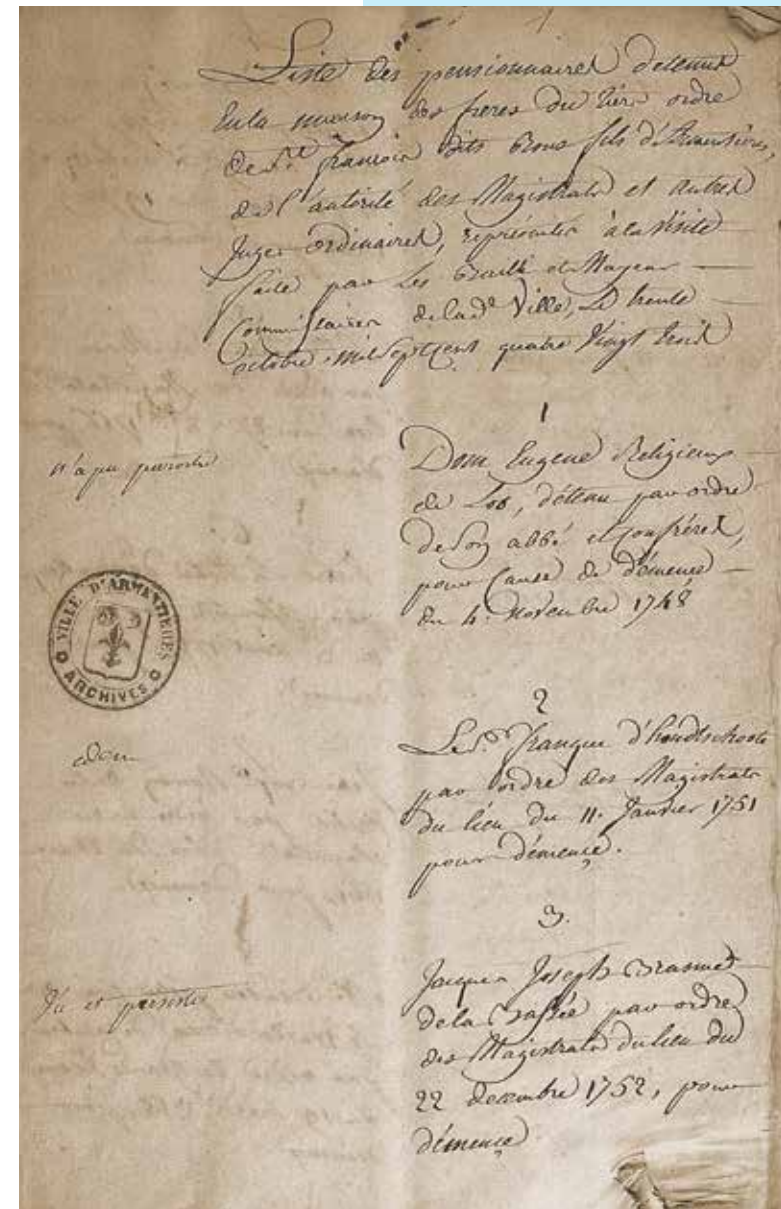 Liste des pensionnaires detenus
En la maison des freres du tiers ordre
de St. francois dits Bons fils d'Armentières,
de l'autorité des Magistrats et autres
Juges ordinaires, représentés à la Visite
faite par les Bailli et Mayeur
Commissaires de lade Ville, Le trente
octobre mil Sept Cent quatre Vingt trois
1
n'a pu paroitre
Dom Eugene Religieux
de Los, détenu par ordre
de son abbé et Confrères,
pour Cause de démence
du 4. Novembre 1748
2
Le Sr. franque d'hondtschoote
par ordre des Magistrats
du lieu du 11. Janvier 1751
pour démence.
3.
Vu et persister
Jacques Joseph Brasme
de la Bassée par ordre
des Magistrats du lieu du
22 decembre 1752, pour
démence
VILLE D'ARMENTIERES
ARCHIVES